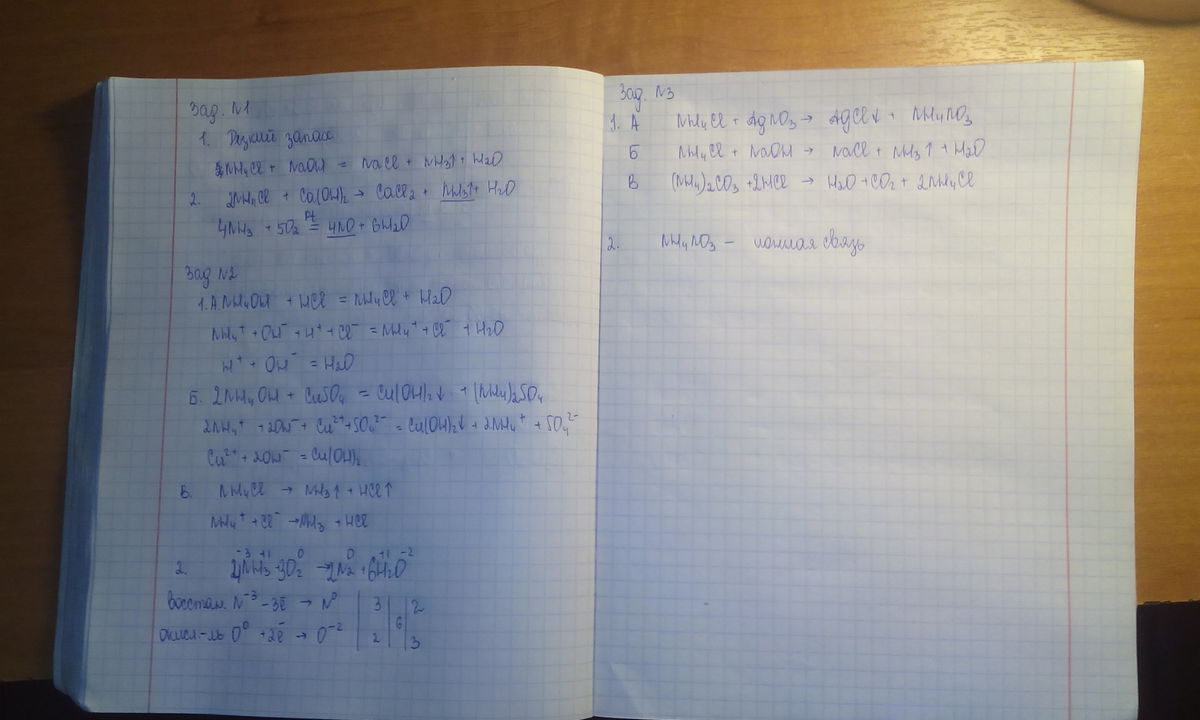 Зад. №1
1. Резкий запах
NH₄Cl + NaOH = NaCl + NH₃↑ + H₂O
2. 2NH₄Cl + Ca(OH)₂ → CaCl₂ + NH₃↑ + H₂O
4NH₃ + 5O₂ =Pt 4NO + 6H₂O
Зад №2
1. А. NH₄OH + HCl = NH₄Cl + H₂O
NH₄⁺ + OH⁻ + H⁺ + Cl⁻ = NH₄⁺ + Cl⁻ + H₂O
H⁺ + OH⁻ = H₂O
Б. 2NH₄OH + CuSO₄ = Cu(OH)₂↓ + (NH₄)₂SO₄
2NH₄⁺ + 2OH⁻ + Cu²⁺ + SO₄²⁻ = Cu(OH)₂↓ + 2NH₄⁺ + SO₄²⁻
Cu²⁺ + 2OH⁻ = Cu(OH)₂
В. NH₄Cl → NH₃↑ + HCl↑
NH₄⁺ + Cl⁻ → NH₃ + HCl
2. 4N⁻³H⁺¹₃ + 3O⁰₂ → 2N⁰₂ + 6H⁺¹₂O⁻²
восстан. N⁻³ - 3ē → N⁰ | 3 | 6 | 2
окисл-ль O⁰ + 2ē → O⁻² | 2 | 3
Зад. №3
1. А NH₄Cl + AgNO₃ → AgCl↓ + NH₄NO₃
Б NH₄Cl + NaOH → NaCl + NH₃↑ + H₂O
В (NH₄)₂CO₃ + 2HCl → H₂O + CO₂ + 2NH₄Cl
2. NH₄NO₃ – ионная связь